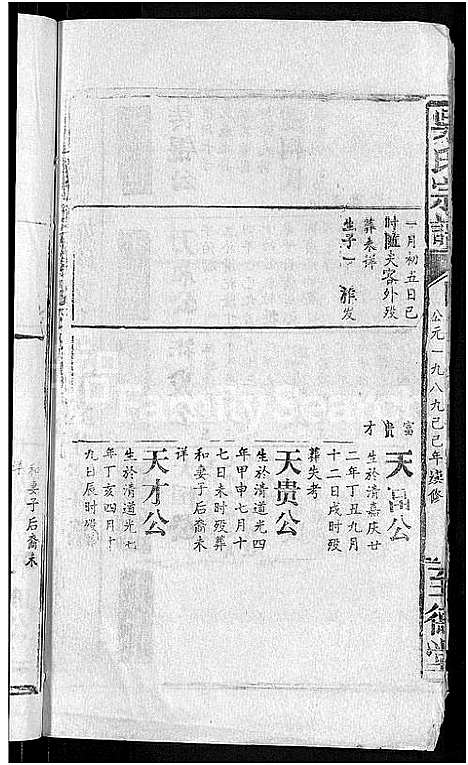 吴氏宗譜
公元一九八九己巳年续修
至德堂
一月初五日巳
时随夫客外殁
葬未详
生子一 雅发
富
贵
才
天富公
生於清嘉庆廿
二年丁丑九月
十二日戌时殁
葬失考
天贵公
生於清道光四
年甲申七月十
七日未时殁葬
和妻子后裔未
详
天才公
生於清道光七
年丁亥四月十
九日辰时殁葬
和妻子后裔未
详